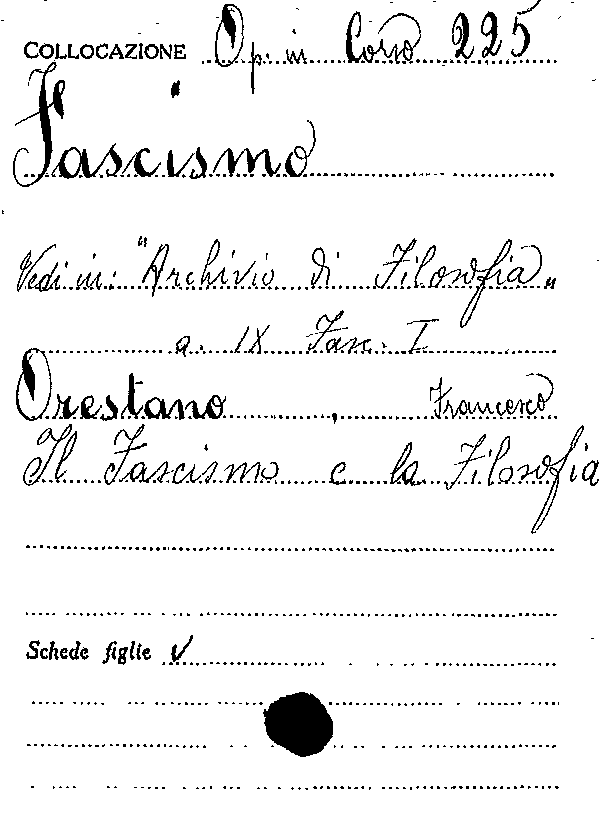 COLLOCAZIONE Op. in Corso 225
Fascismo
Vedi in: "Archivio di Filosofia"
a. IX Fasc. I
Orestano, Francesco
Il Fascismo e la Filosofia
Schede figlie V